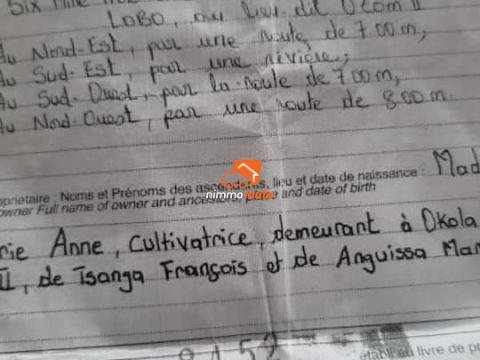 Six Mille
LOBO, au lieu-dit Otom II
Au Nord-Est, par une route de 7.00m,
Au Sud-Est, par une rivière;
Au Sud-Ouest, par la route de 7.00m,
Au Nord-Ouest, par une route de 8.00m.
nimmo place
opriétaire : Noms et Prénoms des ascendents, lieu et date de naissance : Mad
owner Full name of owner and and date of birth
rie Anne, Cultivatrice, demeurant à Okola
II, de Tsanga François et de Anguissa Mar
établi au livre de pr